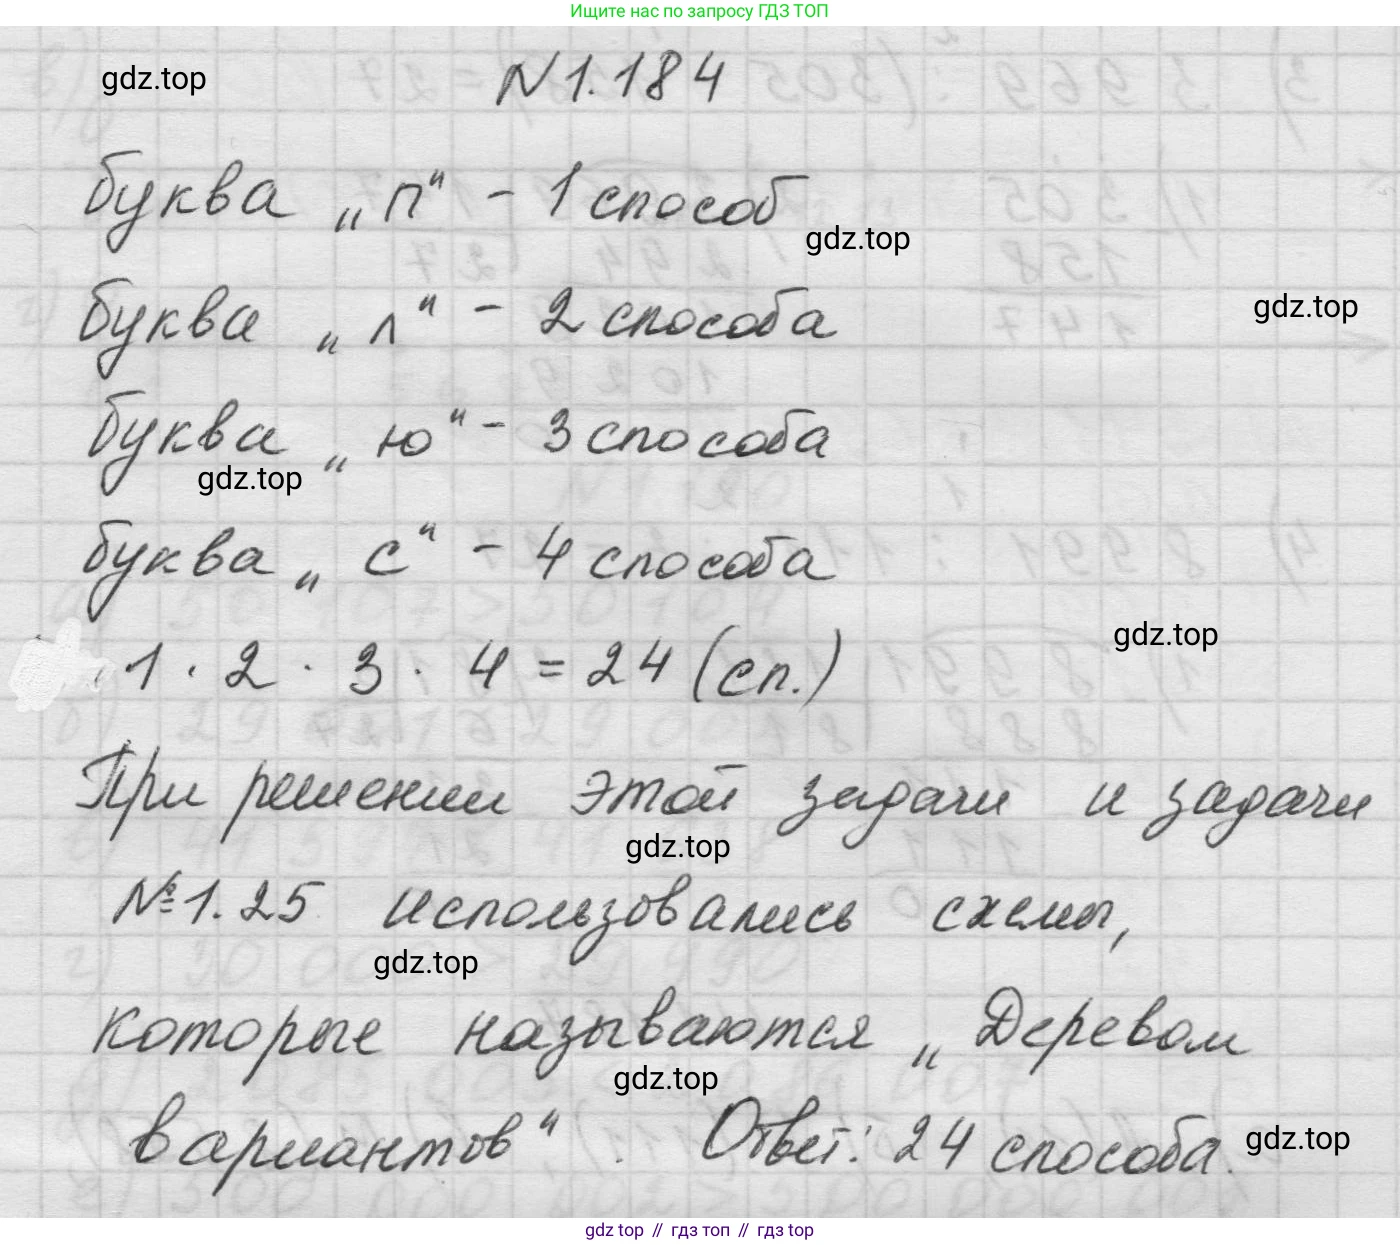 Ищите нас по запросу ГДЗ ТОП
gdz.top
N1.184
буква „п“ - 1 способ
gdz.top
буква „л“ - 2 способа
gdz.top
буква „ю“ - 3 способа
gdz.top
буква „с“ - 4 способа
gdz.top
1 · 2 · 3 · 4 = 24 (сп.)
При решении этой задачи и задачи
gdz.top
№1.25 использовались схемы,
gdz.top
которые называются „Деревом
gdz.top
вариантов“. Ответ: 24 способа.
gdz.top
gdz top // гдз топ // гдз top